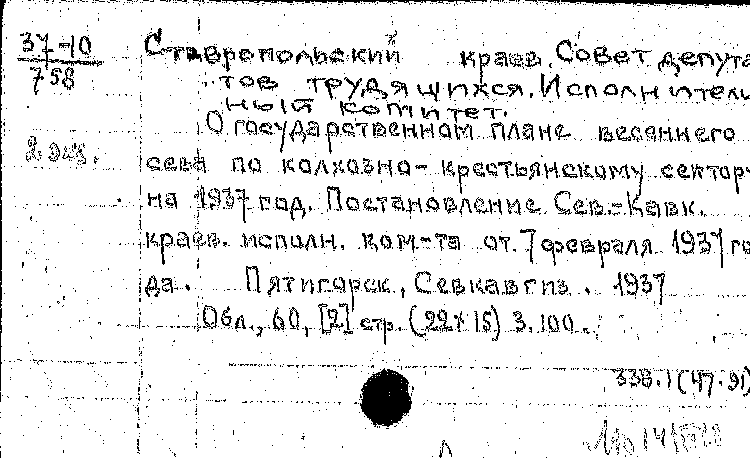 37-10
758
2 экз.
Ставропольский краев. Совет депута-
тов трудящихся. Исполнитель-
ный комитет.
О государственном плане весеннего
сева по колхозно-крестьянскому сектору
на 1937 год. Постановление Сев.-Кавк.
краев. исполн. ком-та от 7 февраля 1937 го-
да. Пятигорск, Севкавгиз. 1937
Обл., 60, [2] стр. (22х15) 3.100.
338.1(47.91)